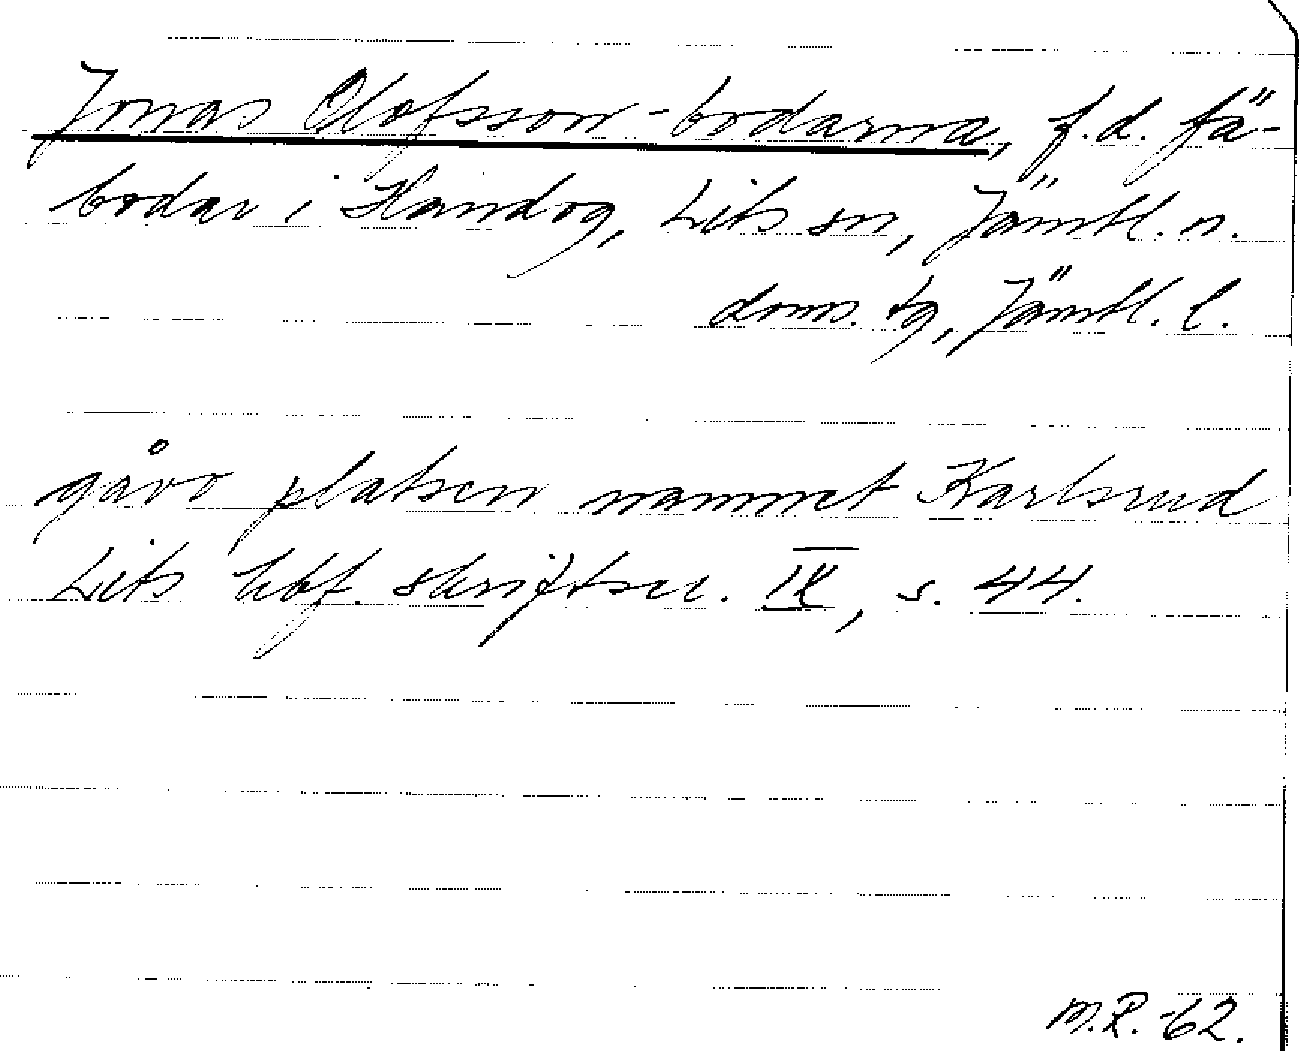 Jonas Olofsson-bodarna, f.d. fä-
bodar i Handog, Lits sn, Jämtl. n.
doms. tg, Jämtl. l.
gåvo platsen namnet Karlsrud
Lits hbf. skriftser. IX, s. 44.
M.R. -62.